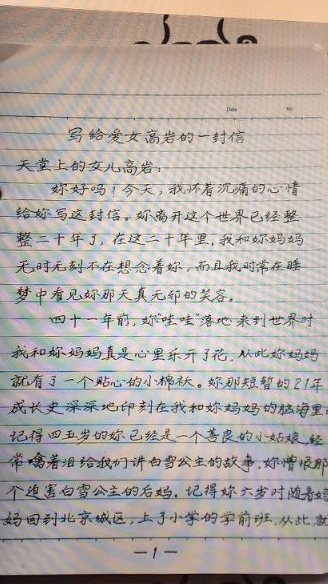 Date
No.
写给爱女高岩的一封信
天堂上的女儿高岩:
妳好吗?今天,我怀着沉痛的心情
给妳写这封信。妳离开这个世界已经整
整二十年了,在这二十年里,我和妳妈妈
无时无刻不在想念着妳,而且我时常在睡
梦中看见妳那天真无邪的笑容。
四十一年前,妳“哇哇”落地来到世界时
我和妳妈妈真是心里乐开了花,从此妳妈妈
就有了一个贴心的小棉袄。妳那短暂的21年
成长史深深地印刻在我和妳妈妈的脑海里
记得四五岁的妳已经是一个善良的小姑娘,经
常噙着泪给我们讲白雪公主的故事,妳憎恨那
个迫害白雪公主的后妈。记得妳六岁时随着妈
妈回到北京城区,上了小学的学前班,从此就
—1—